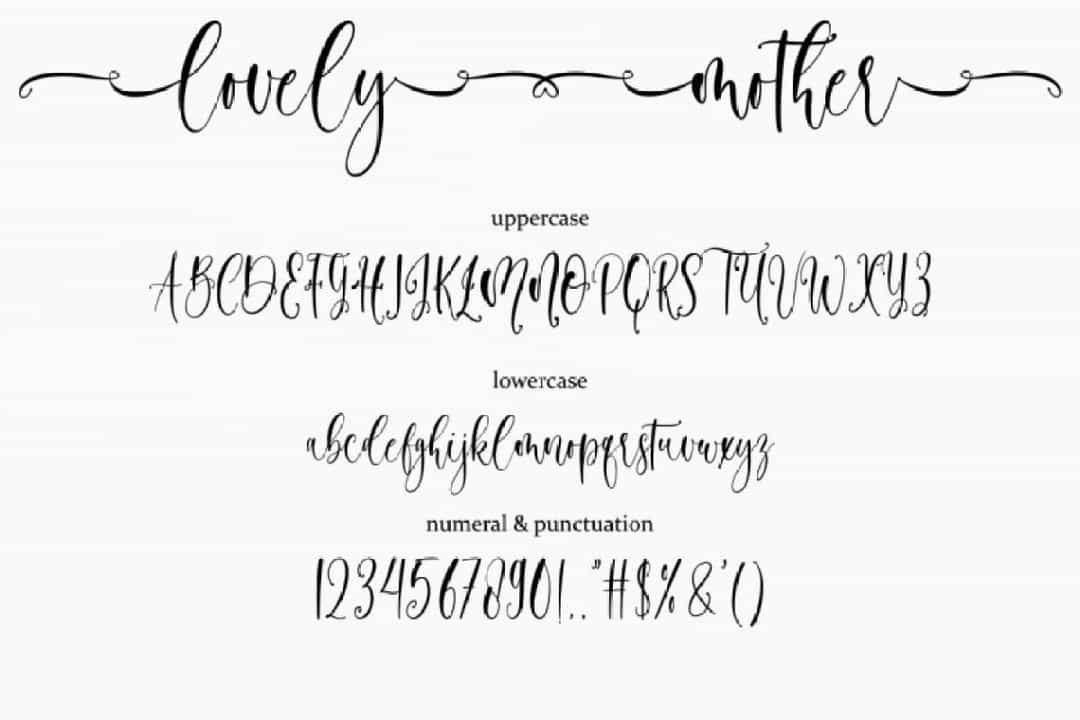 lovely mother
uppercase
ABCDEFGHIJKLMNOPQRSTUVWXYZ
lowercase
abcdefghijklmnopqrstuvwxyz
numeral & punctuation
1234567890!.."#$%&'()